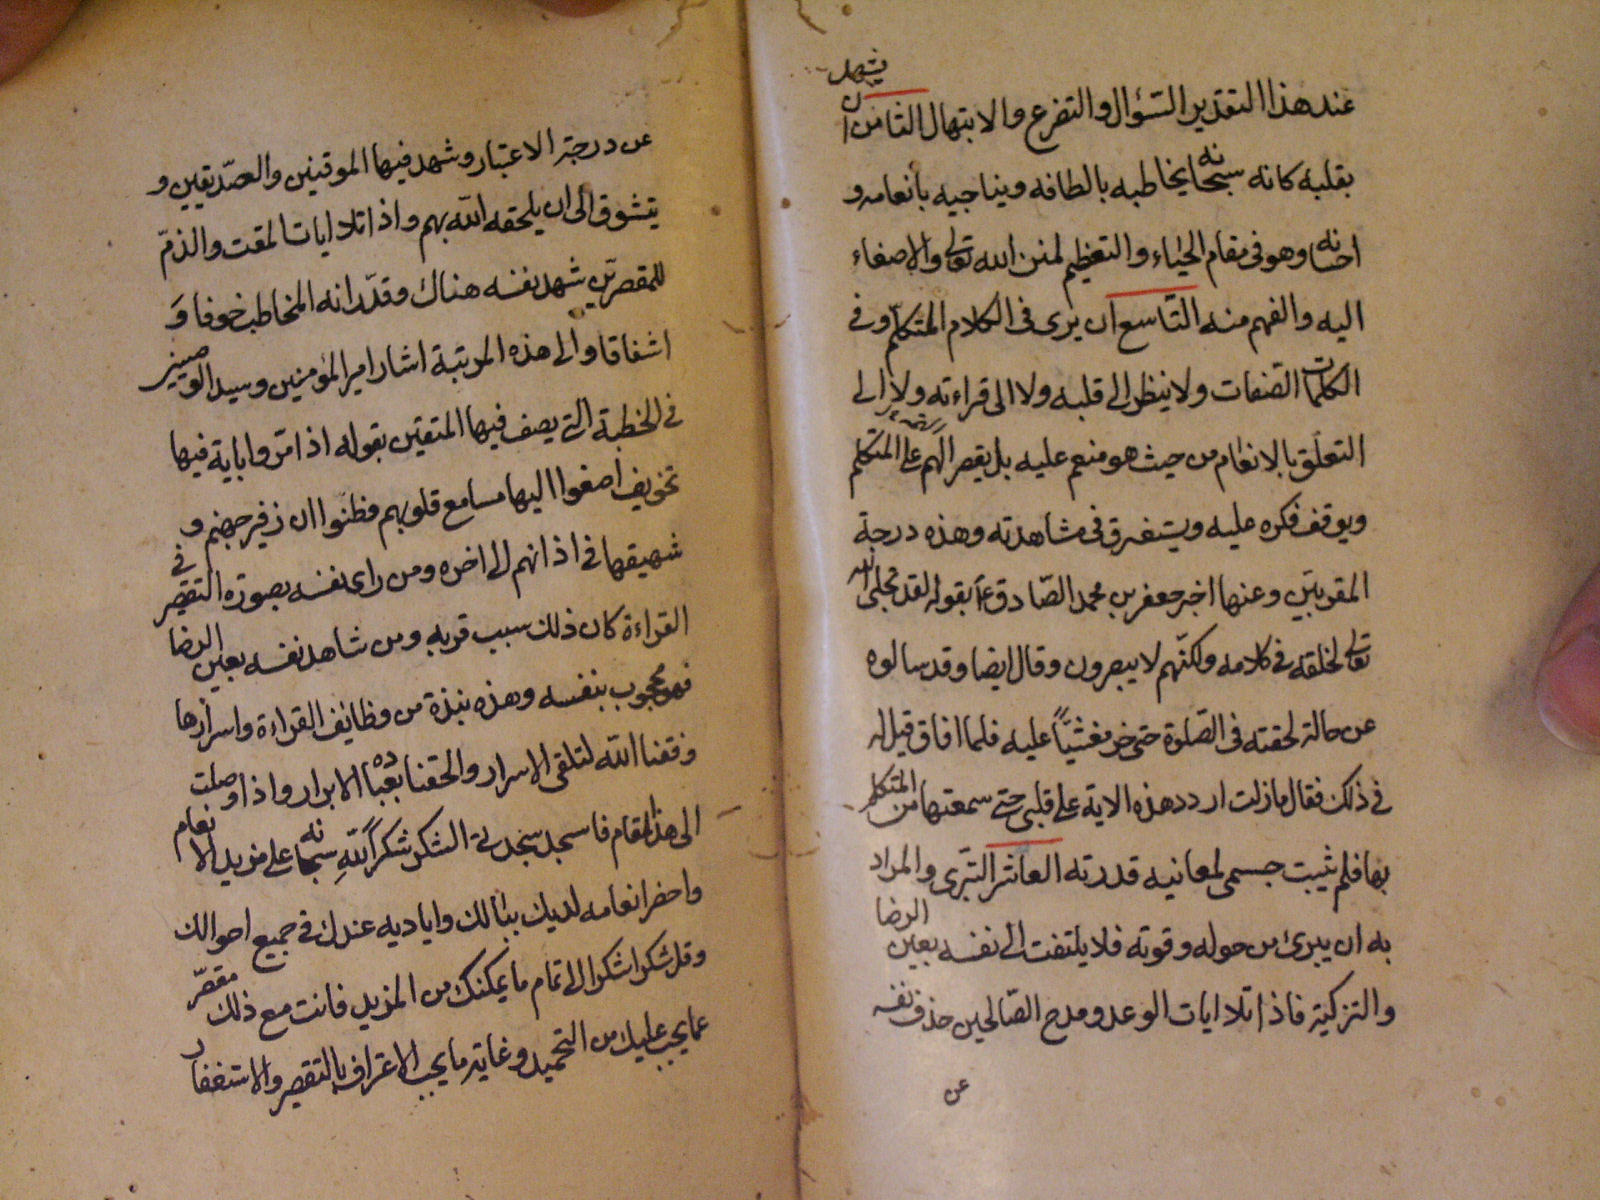 عند هذا التقدير السؤال والتضرع والابتهال الثامن ان يشهد
بقلبه كانه سبحانه يخاطبه بالطافه ويناجيه بأنعامه و
احسانه وهو فى مقام الحياء والتعظيم لمنن الله تعالى والاصغاء
اليه والفهم منه التاسع ان يرى فى الكلام المتكلّم وفى
الكلمات الصّفات ولا ينظر الى قلبه ولا الى قراءته ولا الى
التعلّق بالانعام من حيث هو منعم عليه بل يقصر الهم على المتكلم
ويوقف فكره عليه ويستغرق فى مشاهدته وهذه درجة
المقربين وعنها اخبر جعفر بن محمد الصّادق ع بقوله لقد تجلى الله
تعالى لخلقه فى كلامه ولكنّهم لا يبصرون وقال ايضا وقد سالوه
عن حالة لحقته فى الصّلوة حتى خر مغشيّاً عليه فلما افاق قيل له
فى ذلك فقال مازلت اردد هذه الاية على قلبى حتى سمعتها من المتكلم
بها فلم يثبت جسمى لمعانيه قدرته العاشر التبرى والمراد
به ان يبرئ من حوله وقوته فلا يلتفت الى نفسه بعين الرضا
والتزكية فاذا تلا ايات الوعد ومدح الصّالحين حذف نفسه
عن
عن درجة الاعتبار وشهد فيها الموقنين والصّديقين و
يتشوق الى ان يلحقه الله بهم واذا تلا ايات المقت والذمّ
للمقصرين شهد نفسه هناك وقدّر انه المخاطب خوفا وَ
اشفاقا والى هذه المرتبة اشار امير المؤمنين وسيد الوصيين
فى الخطبة التى يصف فيها المتقين بقوله اذا مرّوا باية فيها
تخويف اصغوا اليها مسامع قلوبهم فظنّوا ان زفير جهنم و
شهيقها فى اذانهم الى اخره ومن راى نفسه بصورة التقصير فى
القراءة كان ذلك سبب قربه ومن شاهد نفسه بعين الرضا
فهو محجوب بنفسه وهذه نبذة من وظايف القراءة واسرارها
وفقنا الله لتلقى الاسرار والحقنا بعباده الابرار واذا وصلت
الى هذا المقام فاسجد سجدة الشكر شكراً للهِ سبحانه على مزيد الانعام
واحضر انعامه لديك بنالك واياديه عندك فى جميع احوالك
وقل شكرا شكرا الى تمام ما يمكنك من المزيد فانت مع ذلك مقصّر
عما يجب عليك من التحميد وغاية ما يجب الاعتراف بالتقصير والاستغفار